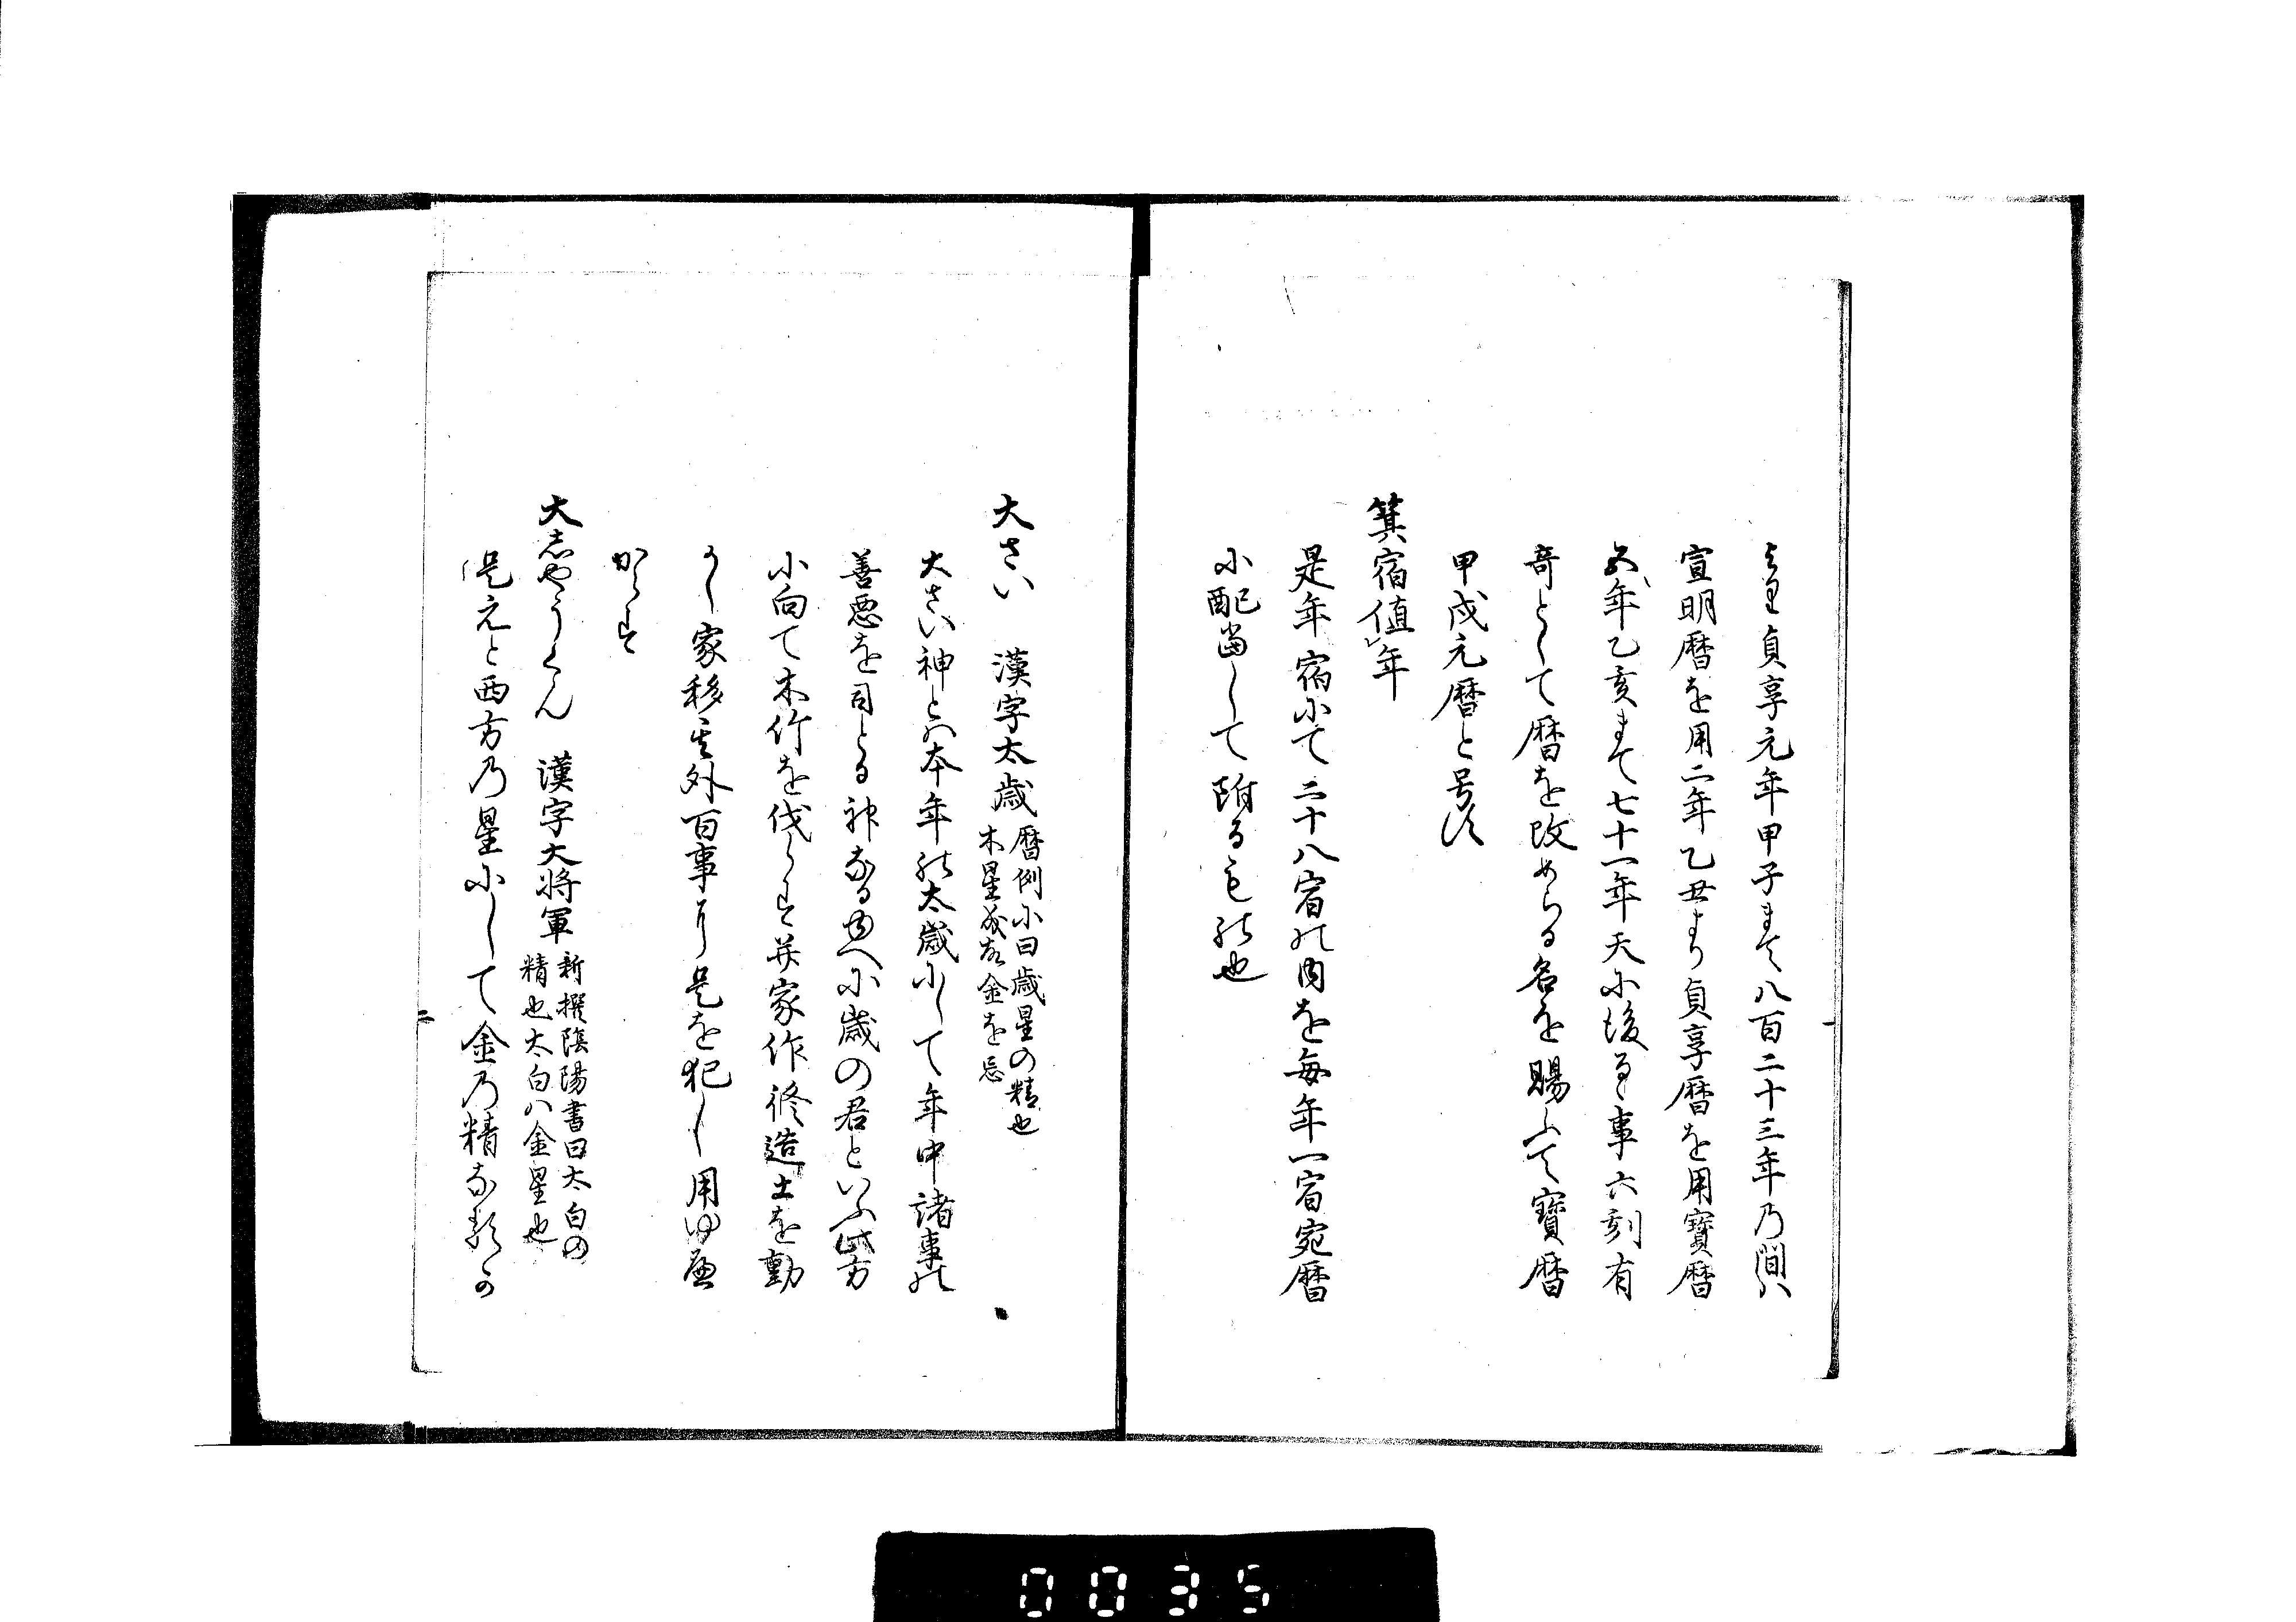 より貞享元年甲子まて八百二十三年乃間ハ
宣明暦を用二年乙丑より貞享暦を用寳暦
五年乙亥まて七十一年天に後るゝ事六刻有
奇として暦を改めらる名を賜ふて寳暦
甲戌元暦と号す
箕宿値年
是年宿にて二十八宿の内を毎年一宿宛暦
に配当して附るもの也
大さい 漢字太歳
暦例に曰歳星の精也
木星成故金を忌
大さい神とハ本年の太歳にして年中諸事の
善悪を司とる神なるゆへに歳の君といふ此方
に向て木竹を伐らす并家作修造土を動
かし家移其外百事とも是を犯し用ゆへ
からす
大志やうくん 漢字大将軍
新撰陰陽書曰太白の
精也太白ハ金星也
是元と西方乃星にして金乃精なるか
二
0035